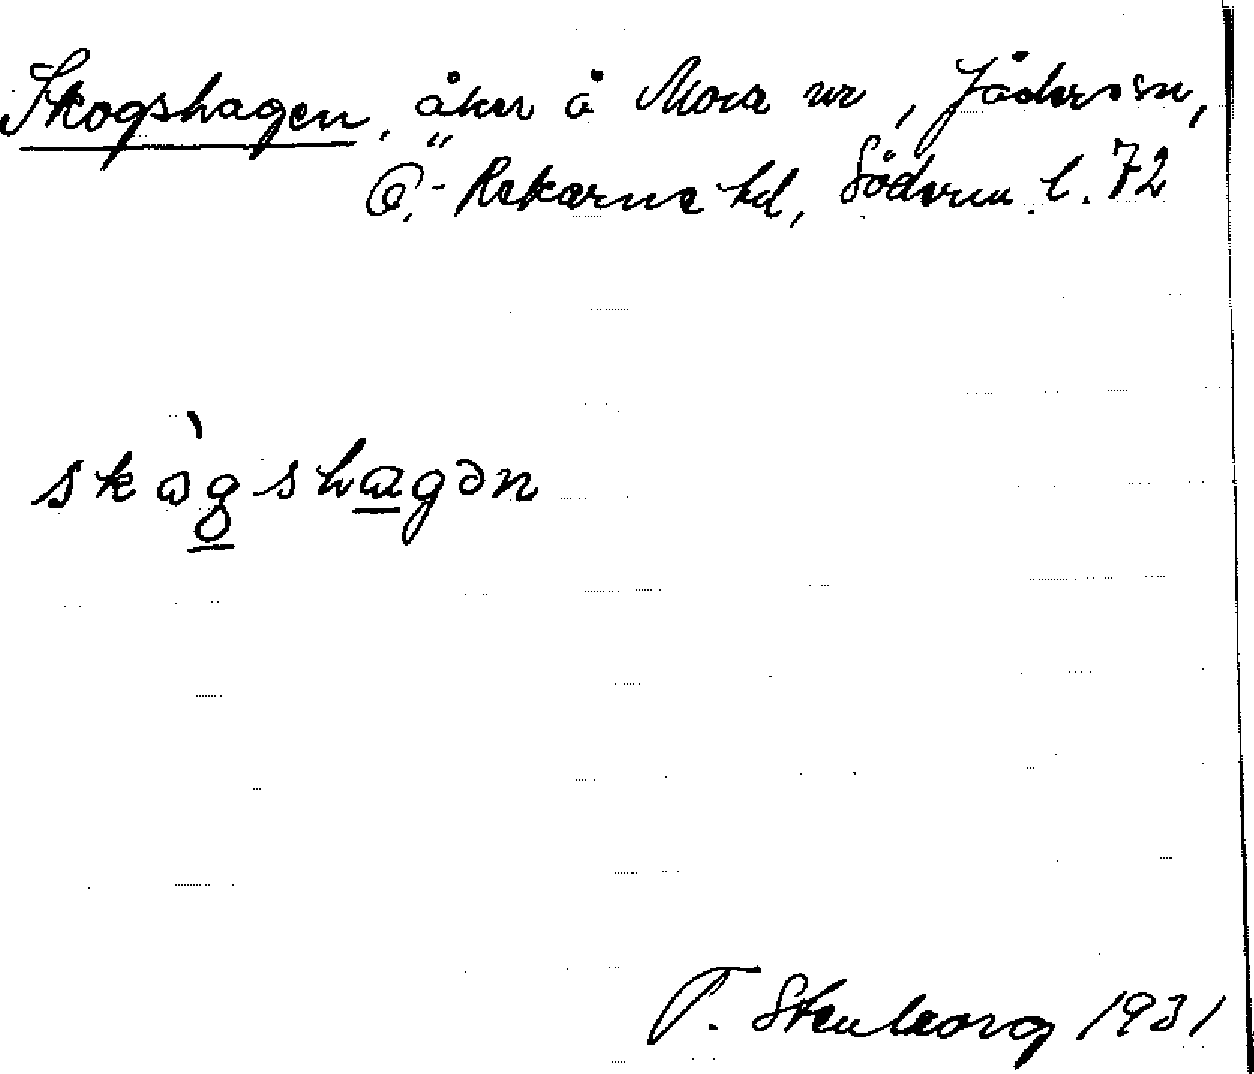 Skogshagen, åker å Mora nr, Jäders sn,
Ö.-Rekarne hd, Söderm. l. 72
skògshagən
T. Stenborg 1931